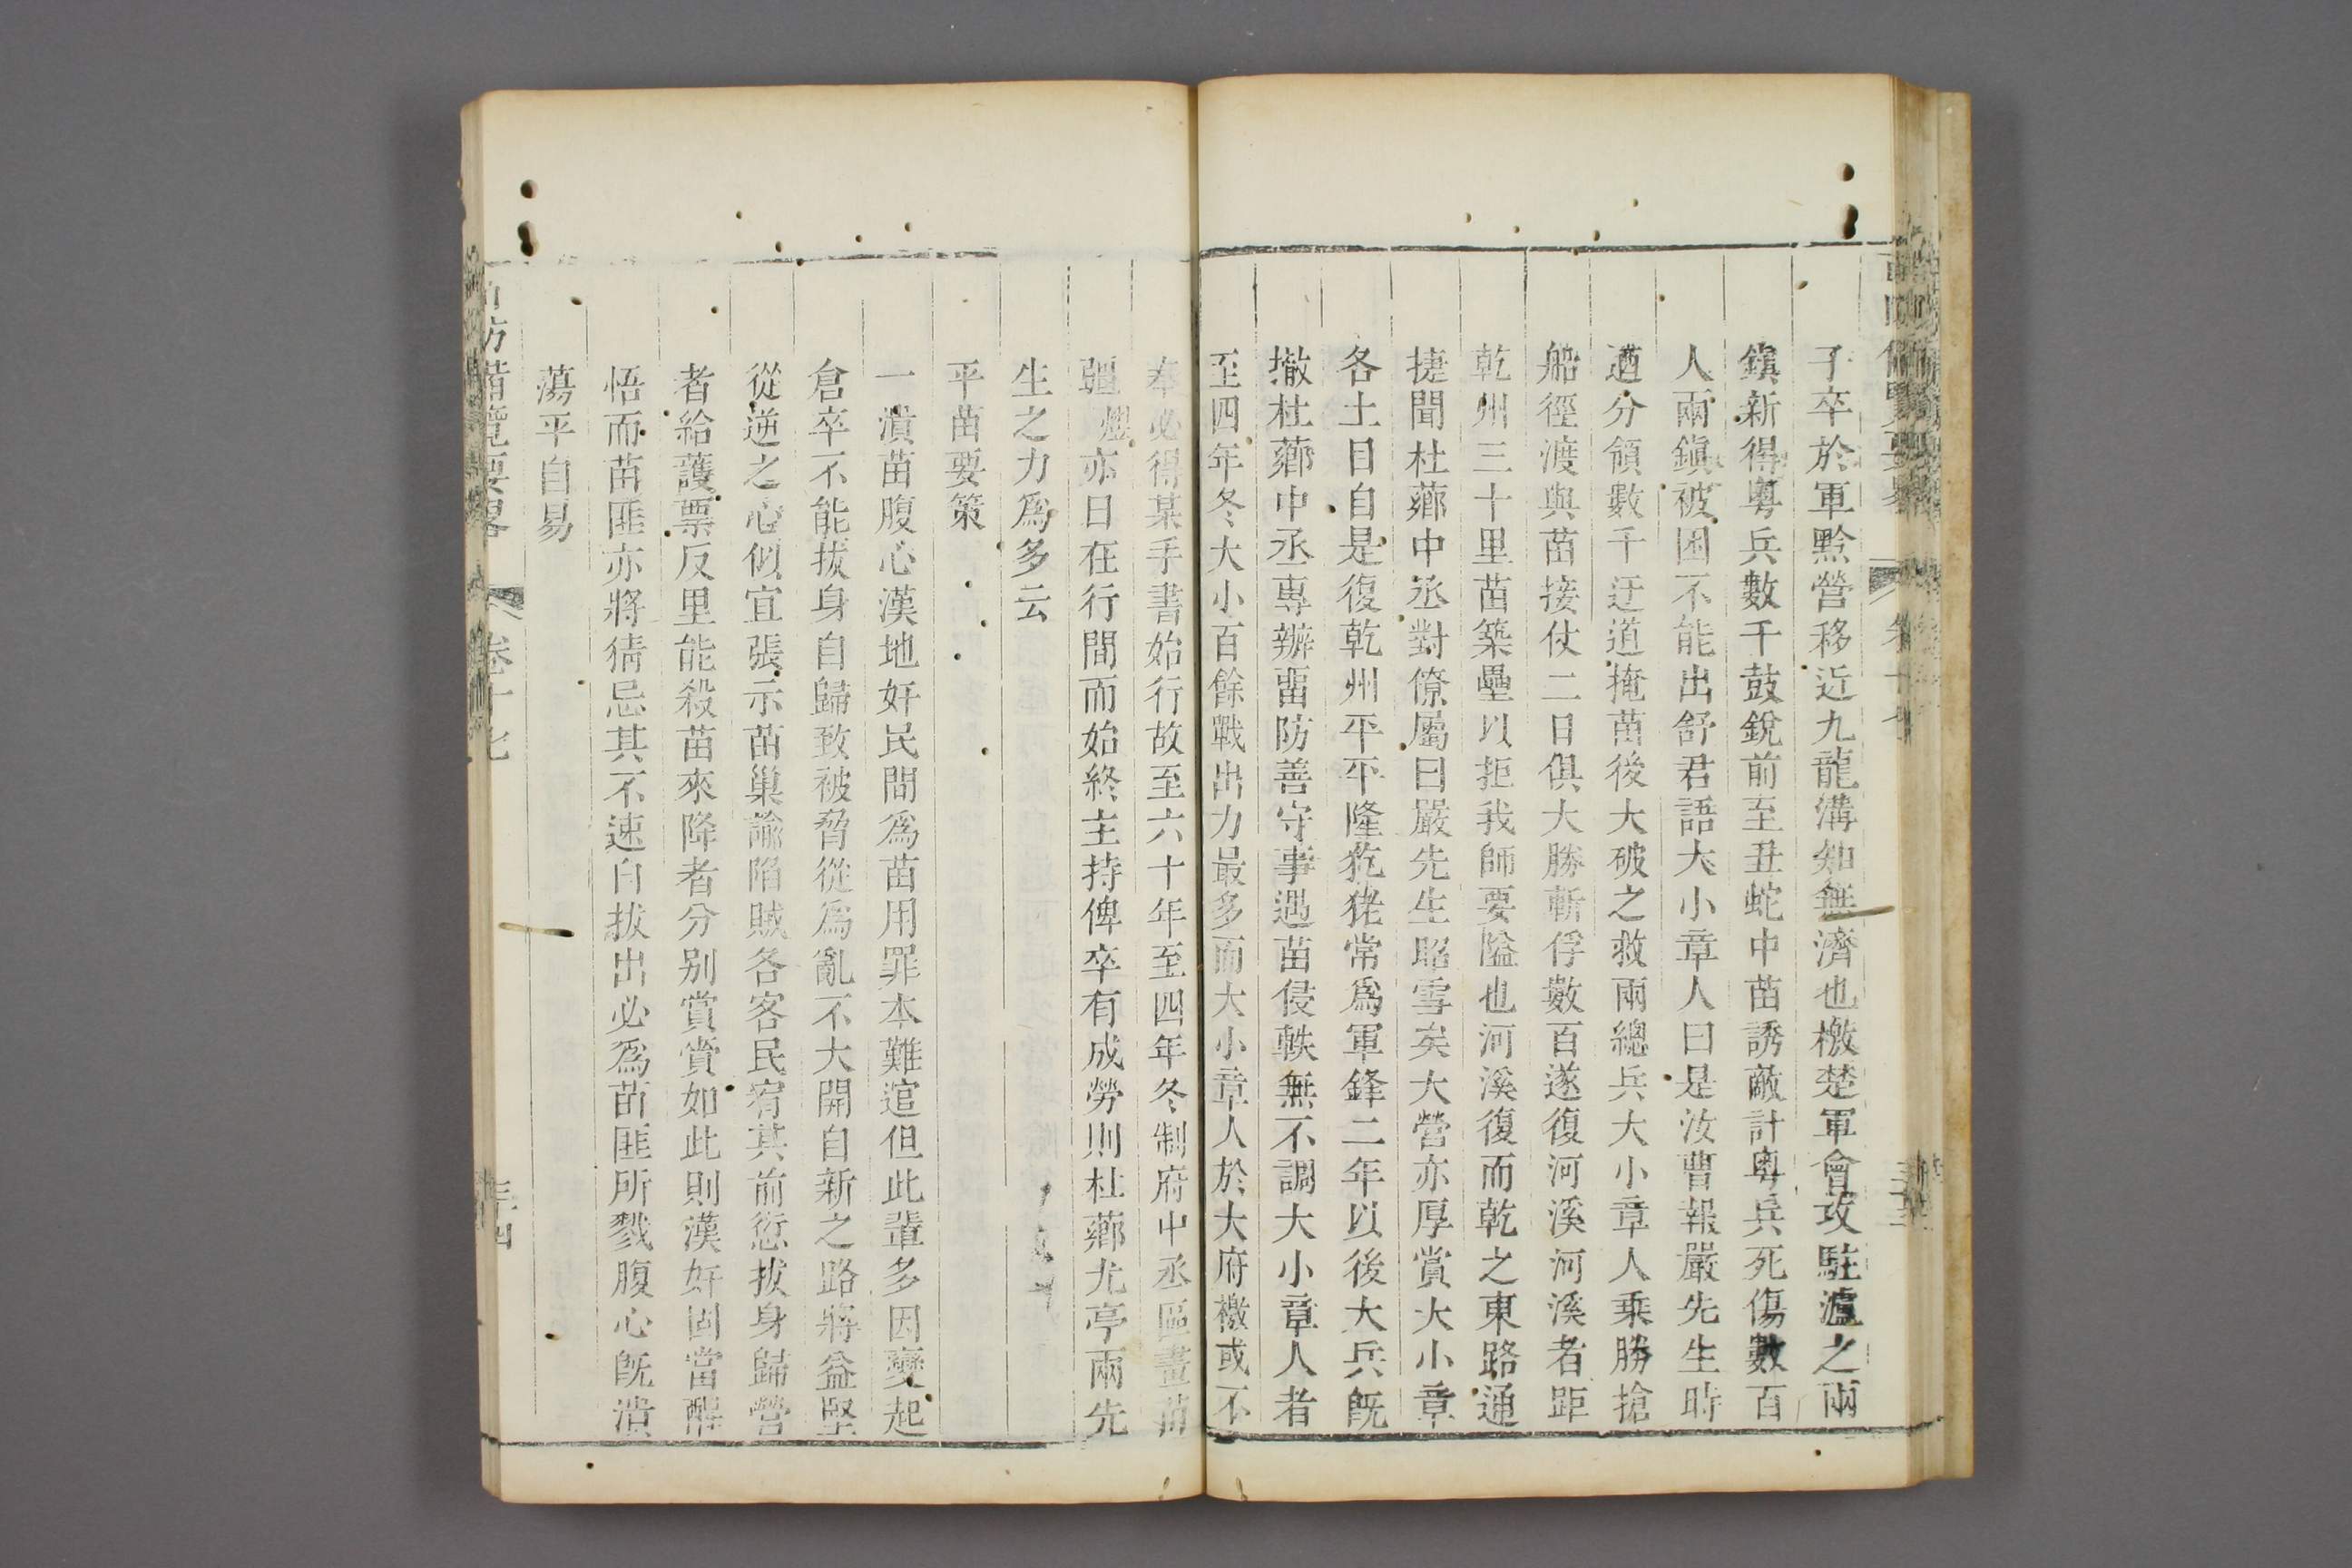 子卒於軍黔營移近九龍溝知無濟也檄楚軍會攻駐瀘之兩
鎮新得粵兵數千鼓銳前至丑蛇中苗誘敵計粵兵死傷數百
人兩鎮被困不能出舒君語大小章人曰是汝曹報嚴先生時
遒分領數千迂道掩苗後大破之救兩總兵大小章人乘勝搶
船徑渡與苗接仗二日俱大勝斬俘數百遂復河溪河溪者距
乾州三十里苗築壘以拒我師要隘也河溪復而乾之東路通
捷聞杜薌中丞對僚屬曰嚴先生昭雪矣大營亦厚賞大小章
各土目自是復乾州平平隆犵狫常爲軍鋒二年以後大兵既
撤杜薌中丞專辦畱防善守事遇苗侵軼無不調大小章人者
至四年冬大小百餘戰出力最多而大小章人於大府檄或不
奉必得某手書始行故至六十年至四年冬制府中丞區畫苗
疆 亦日在行間而始終主持俾卒有成勞則杜薌尤亭兩先
生之力爲多云
平苗要策
一潰苗腹心漢地奸民間爲苗用罪本難逭但此輩多因變起
倉卒不能拔身自歸致被脅從爲亂不大開自新之路將益堅
從逆之心似宜張示苗巢諭陷賊各客民宥其前愆拔身歸營
者給護票反里能殺苗來降者分別賞賚如此則漢奸固當醒
悟而苗匪亦將猜忌其不速自拔出必爲苗匪所戮腹心旣潰
蕩平自易
山防備覽要畧 卷十七 三十四